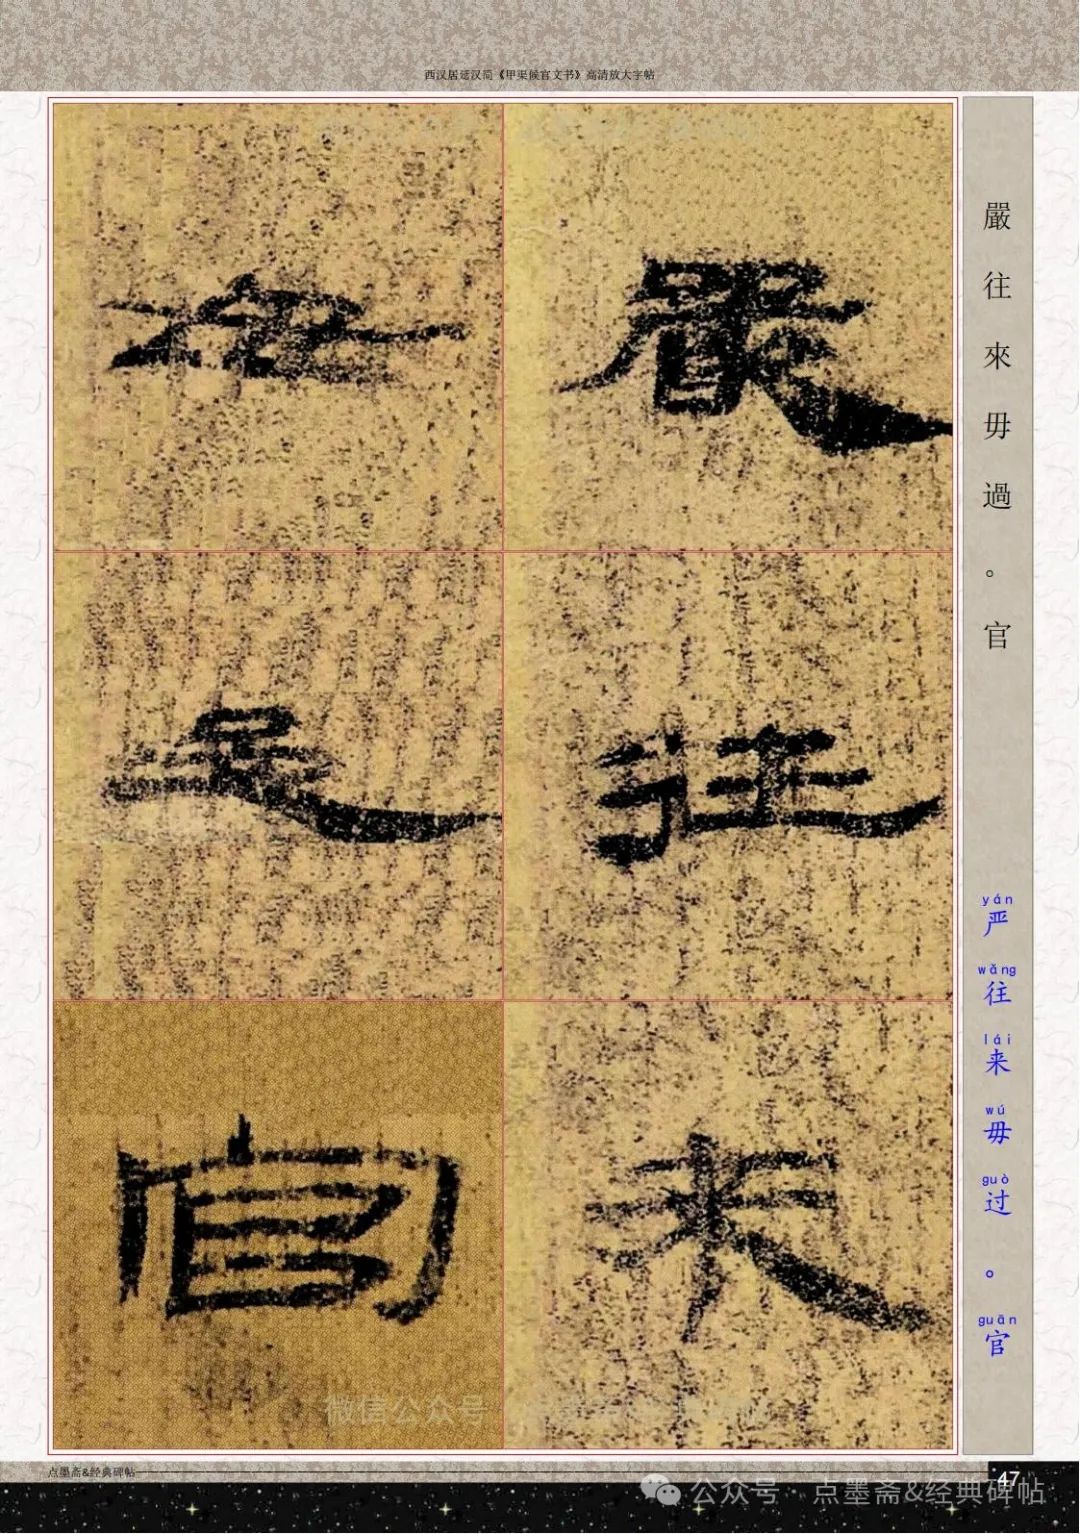 西汉居延汉简《甲渠候官文书》高清放大字帖
嚴
往
來
毋
過
官
嚴往來毋過。官
yán wǎng lái wú guò guān
严往来毋过。官
微信公众号
点墨斋&经典碑帖
47
公众号·点墨斋&经典碑帖